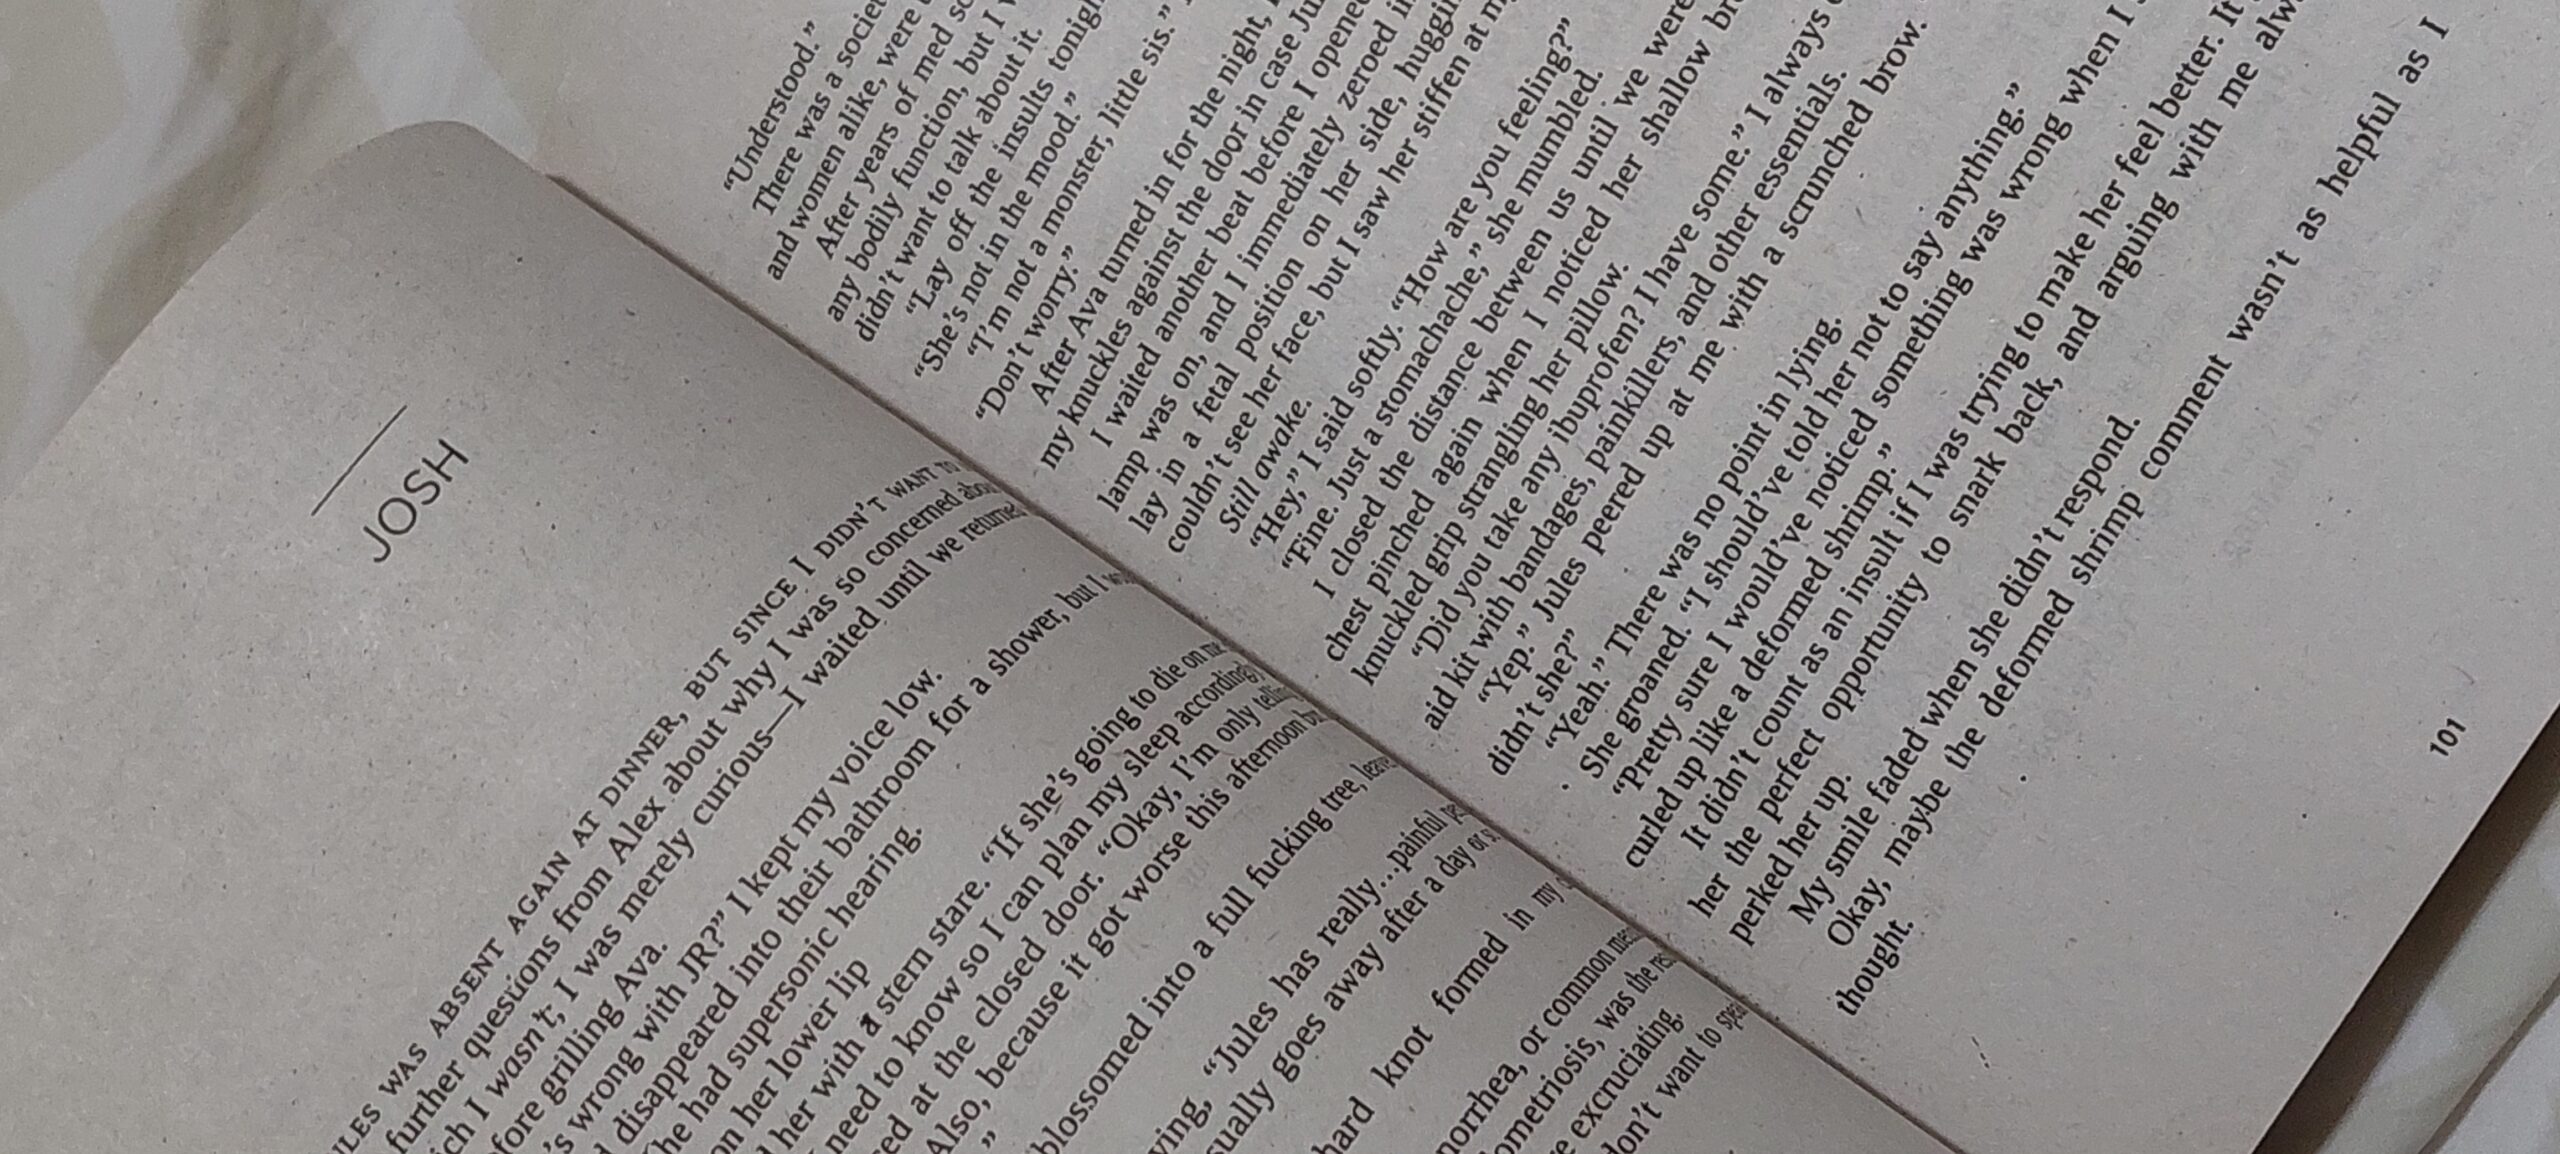 JOSH
WAS ABSENT AGAIN AT DINNER, BUT SINCE I DIDN'T WANT TO
further questions from Alex about why I was so concerned about
I wasn't; I was merely curious—I waited until we returned
grilling Ava.
wrong with JR?” I kept my voice low.
disappeared into their bathroom for a shower, but I
had supersonic hearing.
on her lower lip
her with a stern stare. “If she's going to die on me
need to know so I can plan my sleep accordingly
at the closed door. “Okay, I'm only telling
Also, because it got worse this afternoon but
”
blossomed into a full fucking tree,
“Jules has really…painful
goes away after a day or
hard knot formed in my
or common
was the
excruciating.
don't want to
“Understood.”
There was a
and women alike, were
After years of med
any bodily function, but I
didn't want to talk about it.
“Lay off the insults
“She's not in the mood.”
“I'm not a monster, little sis.”
“Don't worry.”
After Ava turned in for the night,
my knuckles against the door in case
I waited another beat before I opened
lamp was on, and I immediately zeroed
lay in a fetal position on her side,
couldn't see her face, but I saw her stiffen at
Still awake.
“Hey,” I said softly. “How are you feeling?”
“Fine. Just a stomachache,” she mumbled.
I closed the distance between us until we were
chest pinched again when I noticed her shallow
knuckled grip strangling her pillow.
“Did you take any ibuprofen? I have some.” I always
aid kit with bandages, painkillers, and other essentials.
“Yep.” Jules peered up at me with a scrunched brow.
didn't she?”
“Yeah.” There was no point in lying.
She groaned. “I should've told her not to say anything.”
“Pretty sure I would've noticed something was wrong when I
curled up like a deformed shrimp.”
It didn't count as an insult if I was trying to make her feel better. It
her the perfect opportunity to snark back, and arguing with me
perked her up.
My smile faded when she didn't respond.
Okay, maybe the deformed shrimp comment wasn't as helpful as I
thought.
101